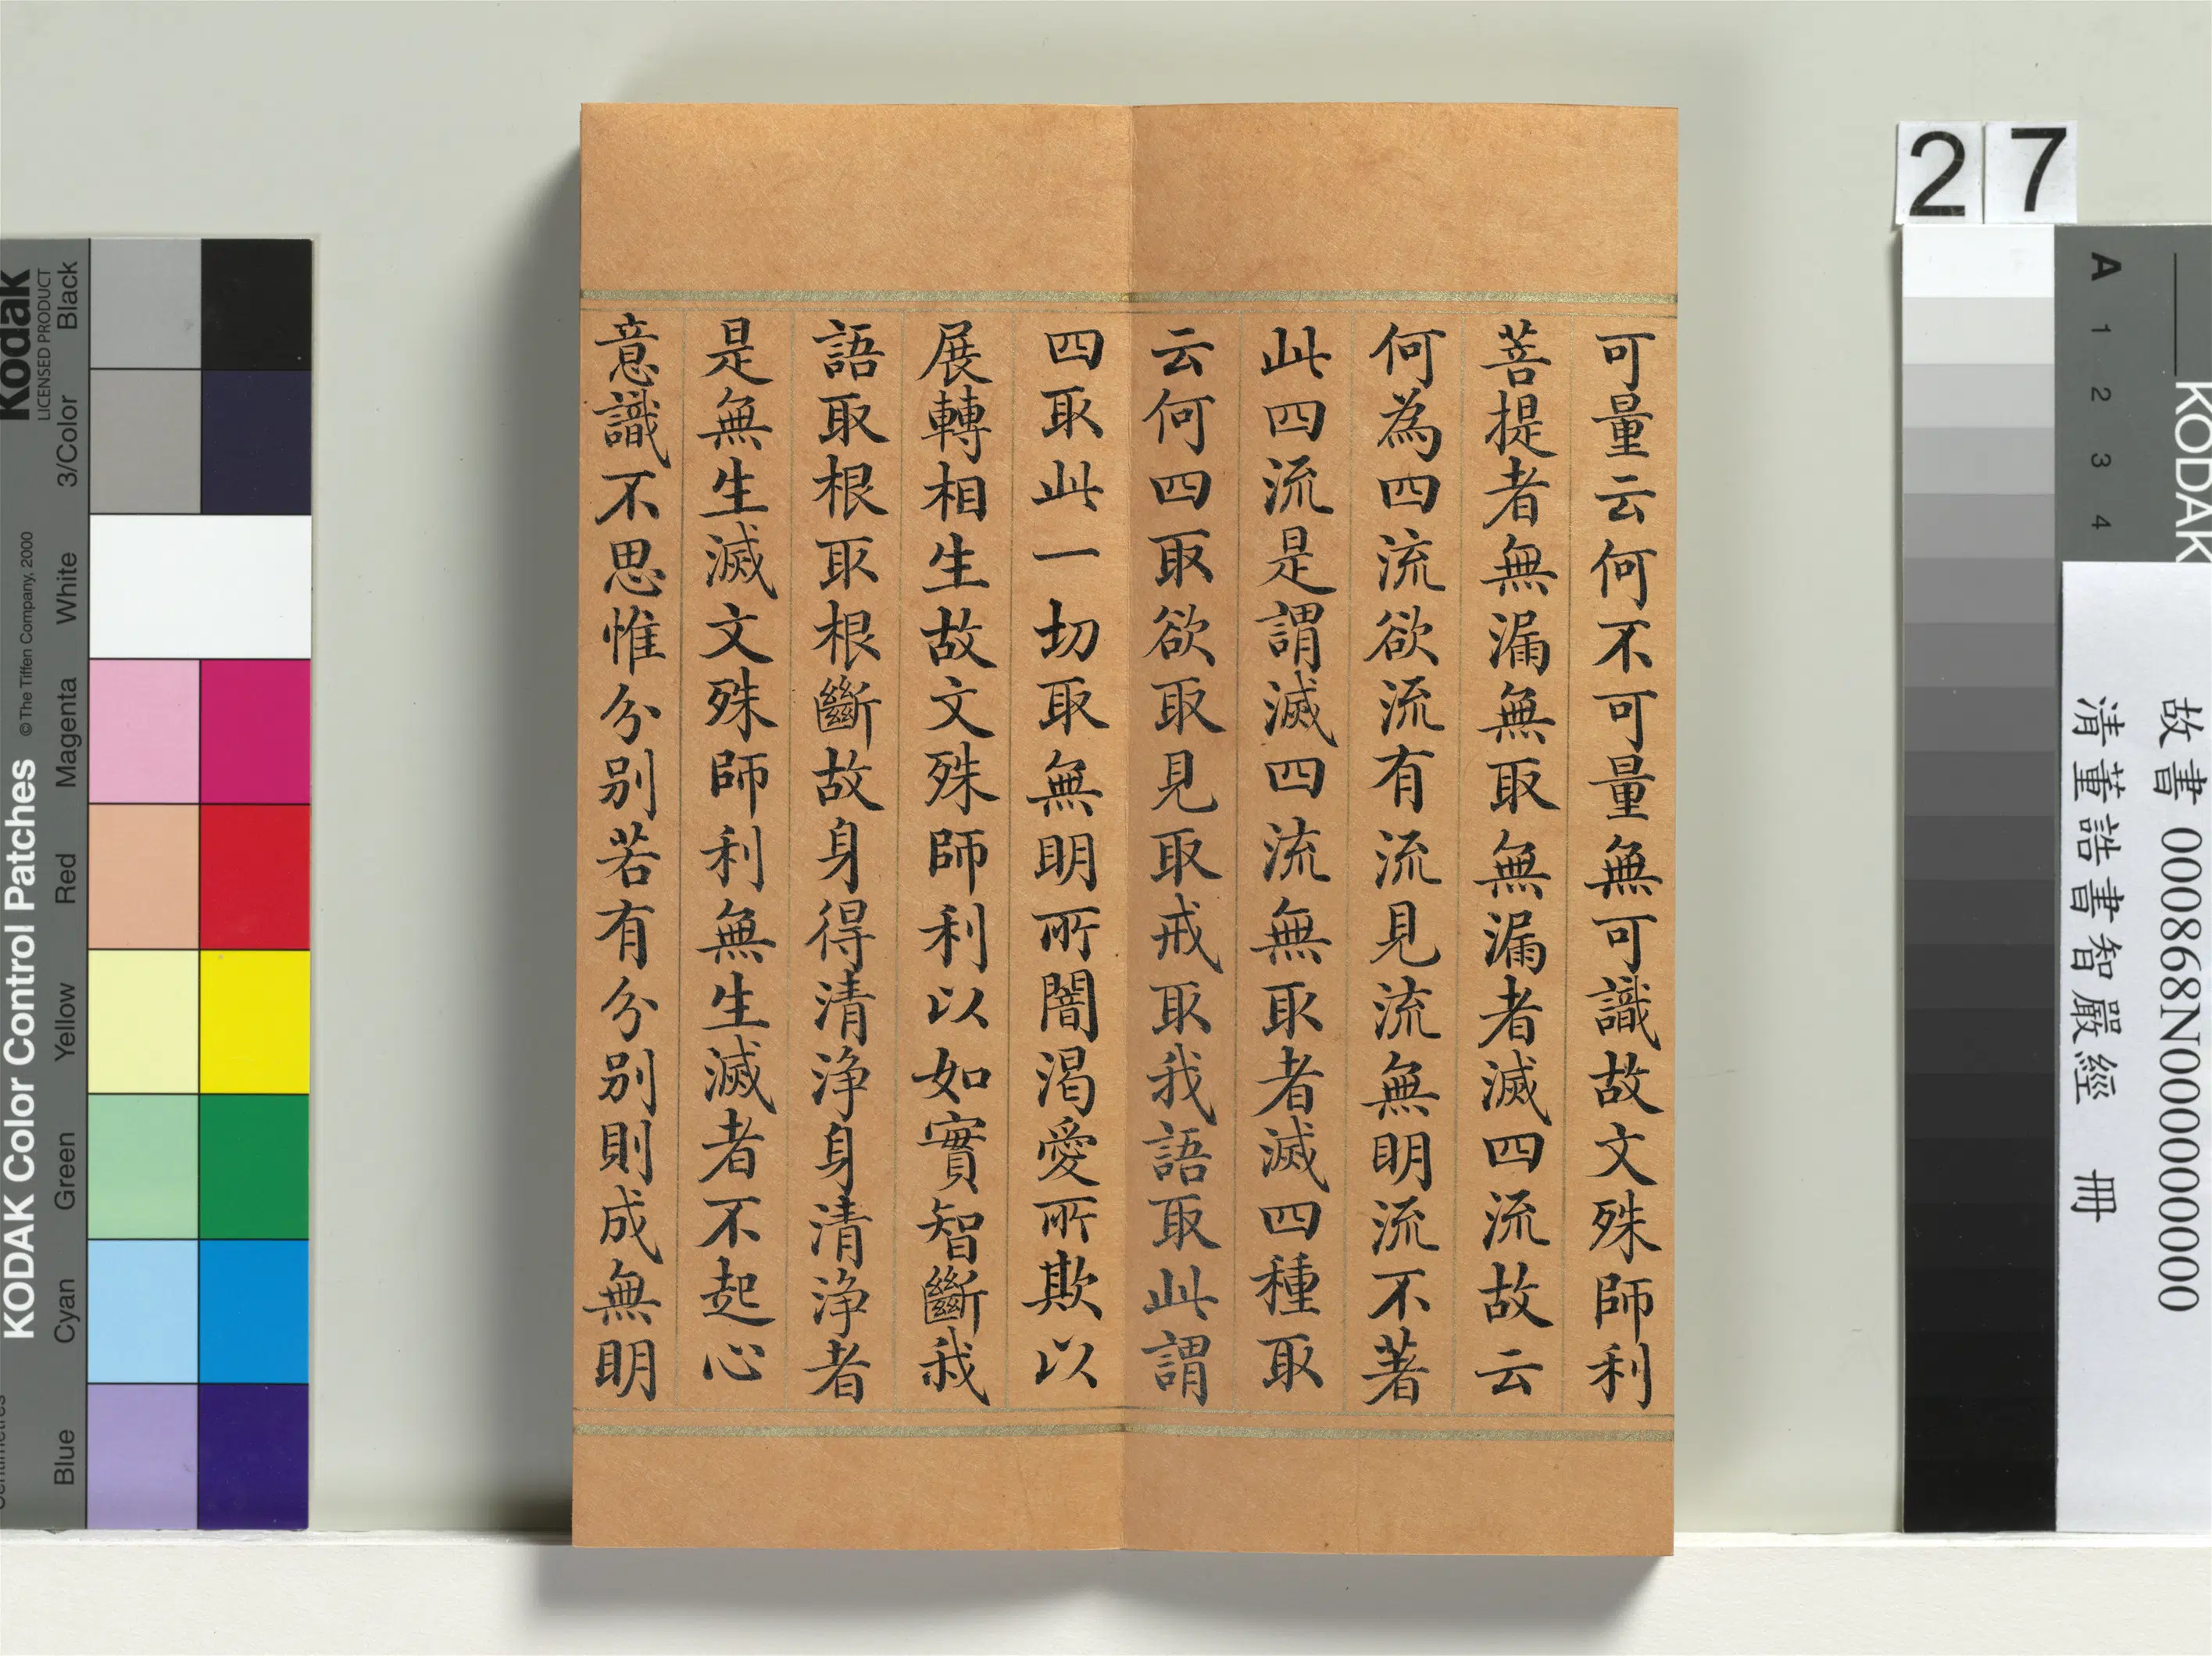 可量云何不可量無可識故文殊師利
菩提者無漏無取無漏者滅四流故云
何為四流欲流有流見流無明流不著
此四流是謂滅四流無取者滅四種取
云何四取欲取見取戒取我語取此謂
四取此一切取無明所闇渴愛所欺以
展轉相生故文殊師利以如實智斷我
語取根取根斷故身得清淨身清淨者
是無生滅文殊師利無生滅者不起心
意識不思惟分別若有分別則成無明
27
KODAK Color Control Patches ©The Tiffen Company, 2000
Kodak
LICENSED PRODUCT
Blue Cyan Green Yellow Red Magenta White 3/Color Black
KODAK
A 1 2 3 4
故書 000868N000000000
清董誥書智嚴經 冊